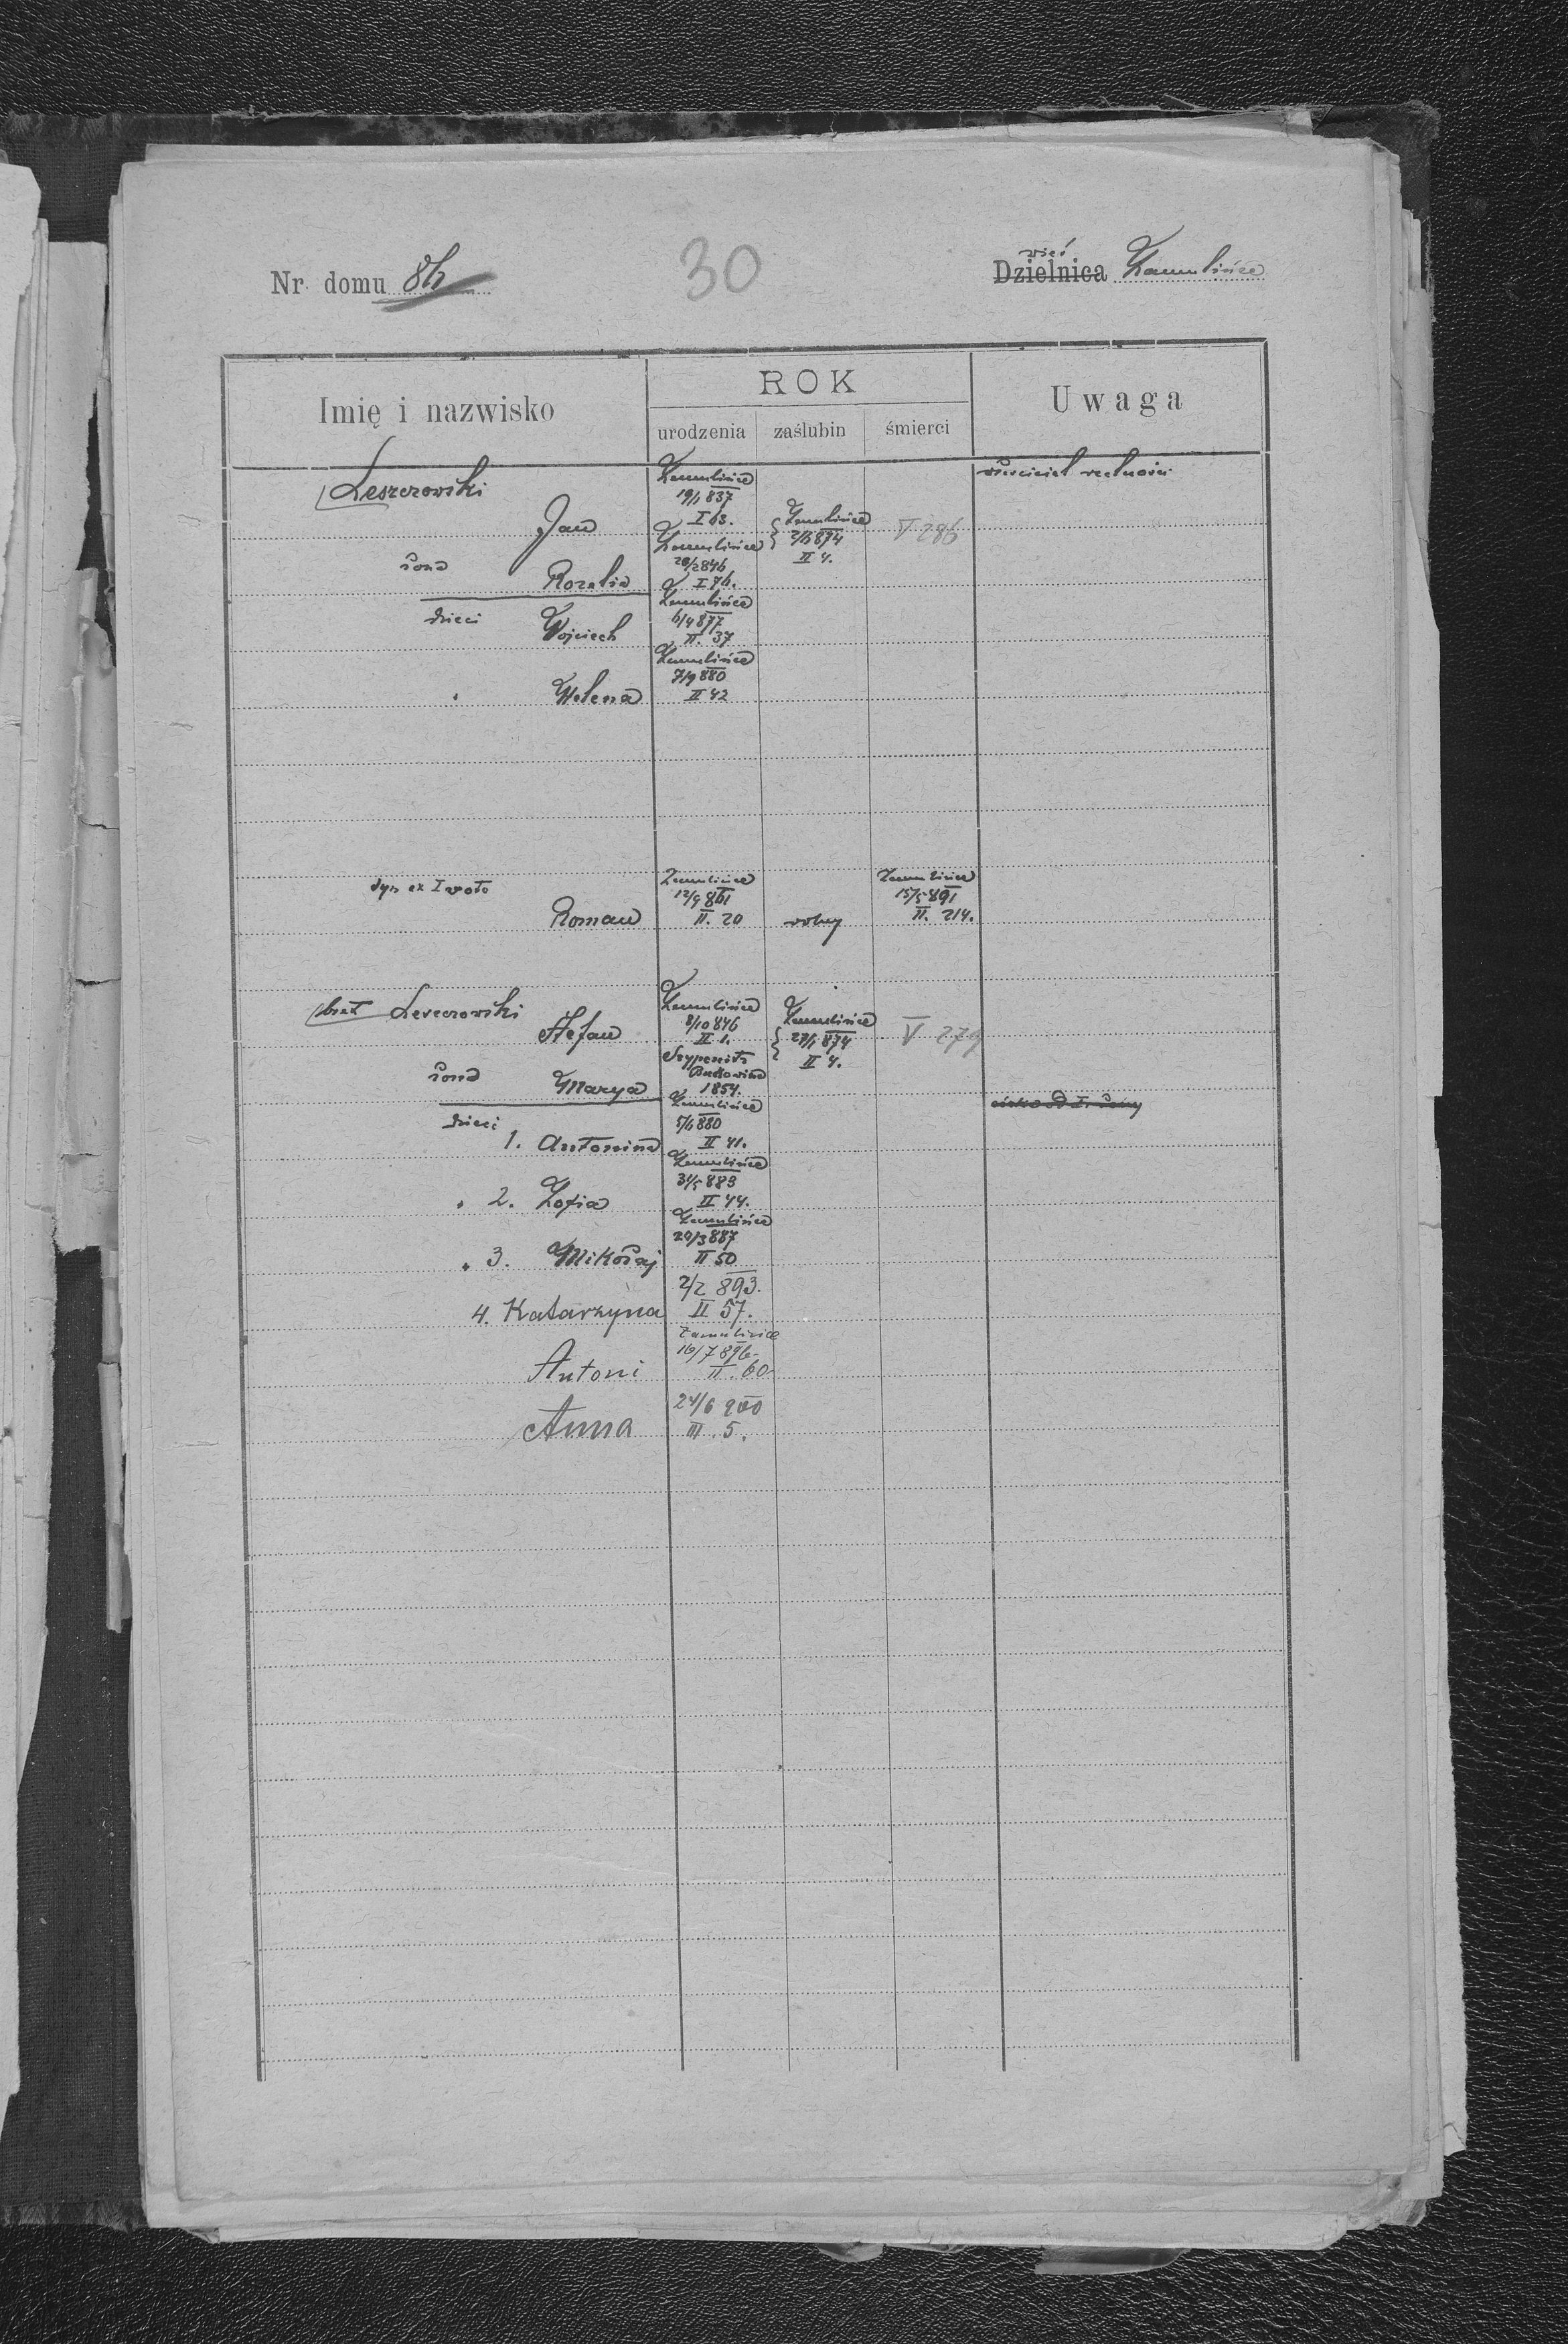 Nr domu 84
30
wieś
Dzielnica Zamulińce
Imię i nazwisko
ROK
urodzenia zaślubin śmierci
Uwaga
Leszczowski
Jan
Zamulińce
19/1 837
I 63.
Zamulińce
II 4.
V 286
właściciel realności
żona Rozalia
Zamulińce
28/2 846
I 76.
dzieci Wojciech
Zamulińce
6/4 877
II. 37
" Helena
Zamulińce
7/9 880
II 42
syn ex I voto
Roman
Zamulińce
12/9 861
II. 20
wolny
Zamulińce
15/5 891
II. 214.
brat Leszczowski
Stefan
Zamulińce
8/10 846
II 1.
Zamulińce
27/1 874
II 4.
V 279
żona Marya
Szypenitz
Bukowina
1854.
dzieci
1. Antonina
Zamulińce
5/6 880
II 41.
" 2. Zofia
Zamulińce
31/5 883
II 44.
" 3. Mikołaj
Zamulińce
20/3 887
II 50
4. Katarzyna
2/2 893.
II 57.
Antoni
Zamulińce
16/7 896
II. 60
Anna
24/6 900
III. 5.